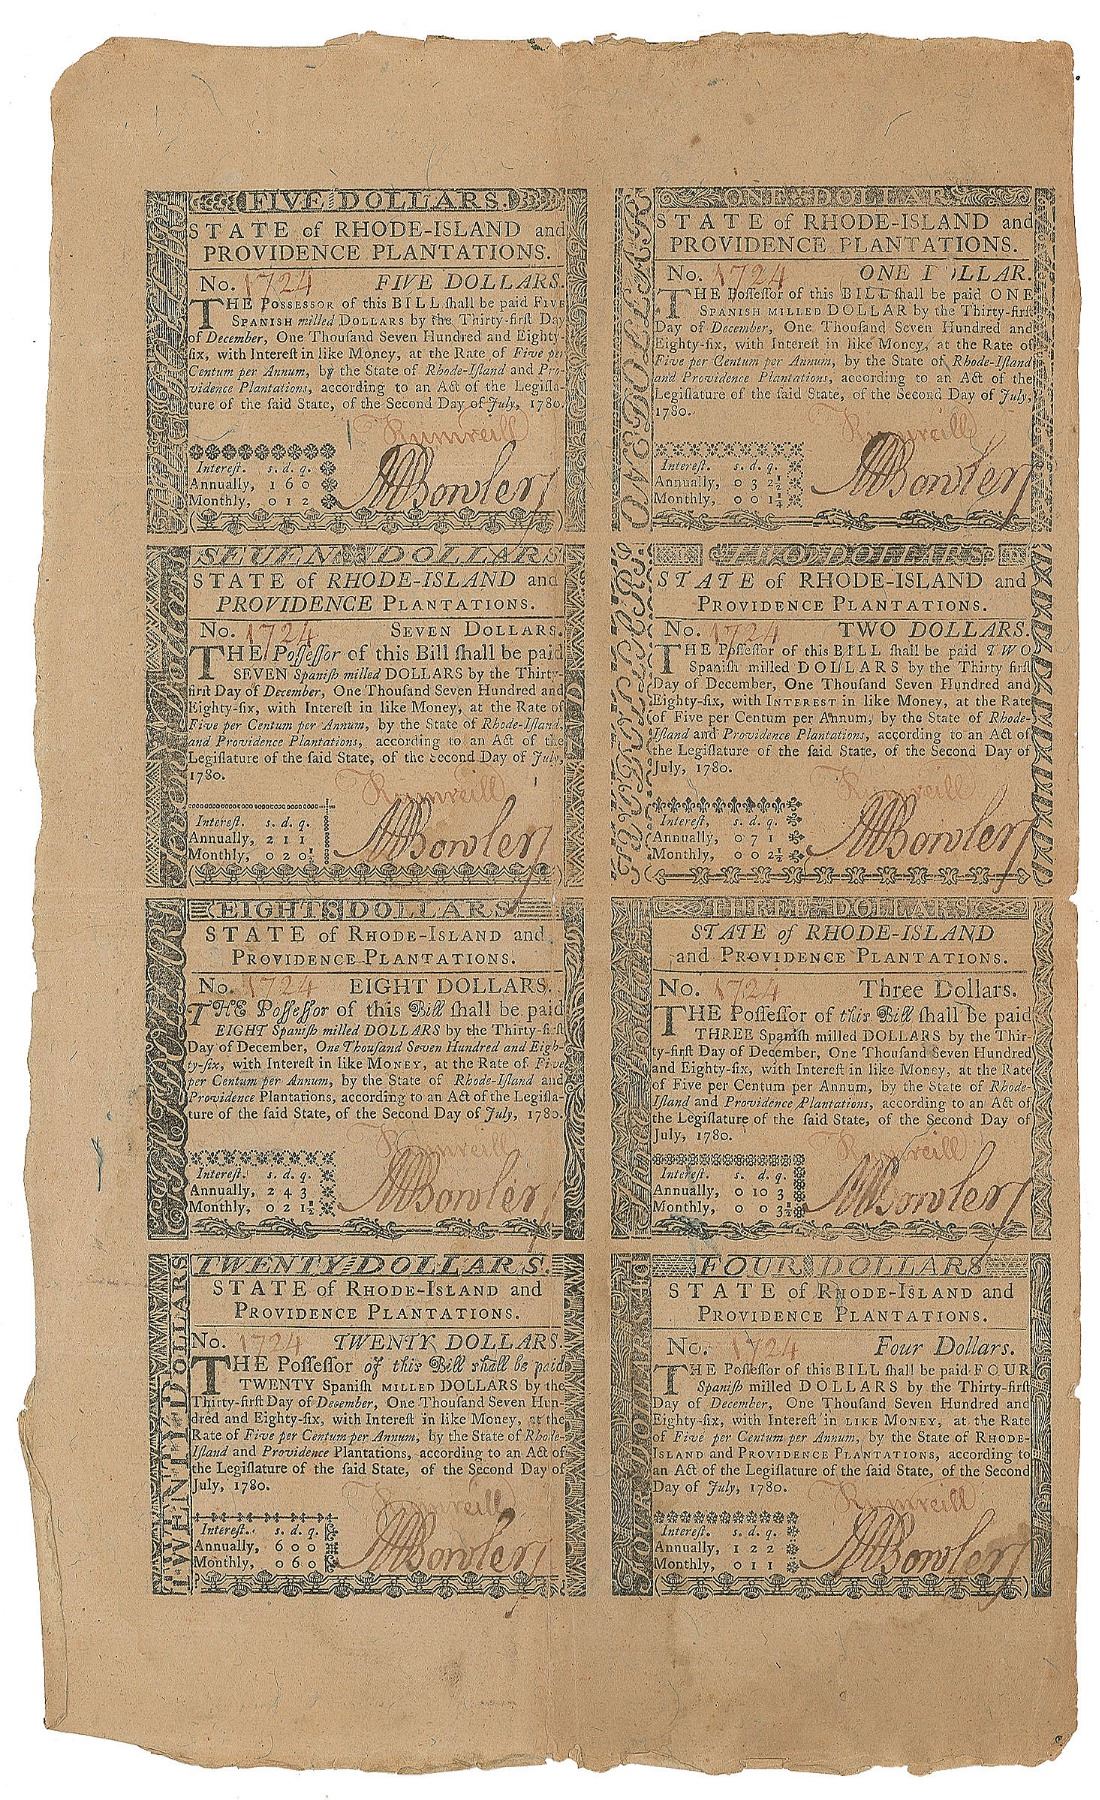 FIVE DOLLARS.
STATE of RHODE-ISLAND and
PROVIDENCE PLANTATIONS.
No. 1724 FIVE DOLLARS.
THE POSSESSOR of this BILL ſhall be paid FIVE
SPANISH milled DOLLARS by the Thirty-firſt Day
of December, One Thouſand Seven Hundred and Eighty-
ſix, with Intereſt in like Money, at the Rate of Five per
Centum per Annum, by the State of Rhode-Iſland and Pro-
vidence Plantations, according to an Act of the Legiſla-
ture of the ſaid State, of the Second Day of July, 1780.
Rumreill
Intereſt. s. d. q.
Annually, 1 6 0
Monthly, 0 1 2
Bowler
ONE DOLLAR
ONE DOLLAR
STATE of RHODE-ISLAND and
PROVIDENCE PLANTATIONS.
No. 1724 ONE DOLLAR.
THE Poſſeſſor of this BILL ſhall be paid ONE
SPANISH MILLED DOLLAR by the Thirty-firſt
Day of December, One Thouſand Seven Hundred and
Eighty-ſix, with Intereſt in like Money, at the Rate of
Five per Centum per Annum, by the State of Rhode-Iſland
and Providence Plantations, according to an Act of the
Legiſlature of the ſaid State, of the Second Day of July,
1780.
Rumreill
Intereſt. s. d. q.
Annually, 0 3 2½
Monthly, 0 0 1¼
Bowler
SEVEN DOLLARS
Seven Dollars
STATE of RHODE-ISLAND and
PROVIDENCE PLANTATIONS.
No. 1724 SEVEN DOLLARS.
THE Poſſeſſor of this Bill ſhall be paid
SEVEN Spaniſh milled DOLLARS by the Thirty-
firſt Day of December, One Thouſand Seven Hundred and
Eighty-ſix, with Intereſt in like Money, at the Rate of
Five per Centum per Annum, by the State of Rhode-Iſland
and Providence Plantations, according to an Act of the
Legiſlature of the ſaid State, of the Second Day of July,
1780.
Rumreill
Intereſt. s. d. q.
Annually, 2 1 1
Monthly, 0 2 0½
Bowler
TWO DOLLARS
STATE of RHODE-ISLAND and
PROVIDENCE PLANTATIONS.
No. 1724 TWO DOLLARS.
THE Poſſeſſor of this BILL ſhall be paid TWO
Spaniſh milled DOLLARS by the Thirty firſt
Day of December, One Thouſand Seven Hundred and
Eighty-ſix, with INTEREST in like Money, at the Rate
of Five per Centum per Annum, by the State of Rhode-
Iſland and Providence Plantations, according to an Act of
the Legiſlature of the ſaid State, of the Second Day of
July, 1780.
Rumreill
Intereſt. s. d. q.
Annually, 0 7 1
Monthly, 0 0 2½
Bowler
EIGHT DOLLARS
STATE of RHODE-ISLAND and
PROVIDENCE PLANTATIONS.
No. 1724 EIGHT DOLLARS.
THE Poſſeſſor of this Bill ſhall be paid
EIGHT Spaniſh milled DOLLARS by the Thirty-firſt
Day of December, One Thouſand Seven Hundred and Eigh-
ty-ſix, with Intereſt in like MONEY, at the Rate of Five
per Centum per Annum, by the State of Rhode-Iſland and
Providence Plantations, according to an Act of the Legiſla-
ture of the ſaid State, of the Second Day of July, 1780.
Rumreill
Intereſt. s. d. q.
Annually, 2 4 3
Monthly, 0 2 1½
Bowler
THREE DOLLARS
Three Dollars
STATE of RHODE-ISLAND
and PROVIDENCE PLANTATIONS.
No. 1724 Three Dollars.
THE Poſſeſſor of this Bill ſhall be paid
THREE Spaniſh milled DOLLARS by the Thir-
ty-firſt Day of December, One Thouſand Seven Hundred
and Eighty-ſix, with Intereſt in like Money, at the Rate
of Five per Centum per Annum, by the State of Rhode-
Iſland and Providence Plantations, according to an Act of
the Legiſlature of the ſaid State, of the Second Day of
July, 1780.
Rumreill
Intereſt. s. d. q.
Annually, 0 10 3
Monthly, 0 0 3½
Bowler
TWENTY DOLLARS.
TWENTY DOLLARS
STATE of RHODE-ISLAND and
PROVIDENCE PLANTATIONS.
No. 1724 TWENTY DOLLARS.
THE Poſſeſſor of this Bill shall be paid
TWENTY Spaniſh MILLED DOLLARS by the
Thirty-firſt Day of December, One Thouſand Seven Hun-
dred and Eighty-ſix, with Intereſt in like Money, at the
Rate of Five per Centum per Annum, by the State of Rhode-
Iſland and Providence Plantations, according to an Act of
the Legiſlature of the ſaid State, of the Second Day of
July, 1780.
Rumreill
Intereſt. s. d. q.
Annually, 6 0 0
Monthly, 0 6 0
Bowler
FOUR DOLLARS
FOUR DOLLARS
STATE of RHODE-ISLAND and
PROVIDENCE PLANTATIONS.
No. 1724 Four Dollars.
THE Poſſeſſor of this BILL ſhall be paid FOUR
Spaniſh milled DOLLARS by the Thirty-firſt
Day of December, One Thouſand Seven Hundred and
Eighty-ſix, with Intereſt in LIKE MONEY, at the Rate
of Five per Centum per Annum, by the State of RHODE-
ISLAND and PROVIDENCE PLANTATIONS, according to
an Act of the Legiſlature of the ſaid State, of the Second
Day of July, 1780.
Rumreill
Intereſt. s. d. q.
Annually, 1 2 2
Monthly, 0 1 1
Bowler